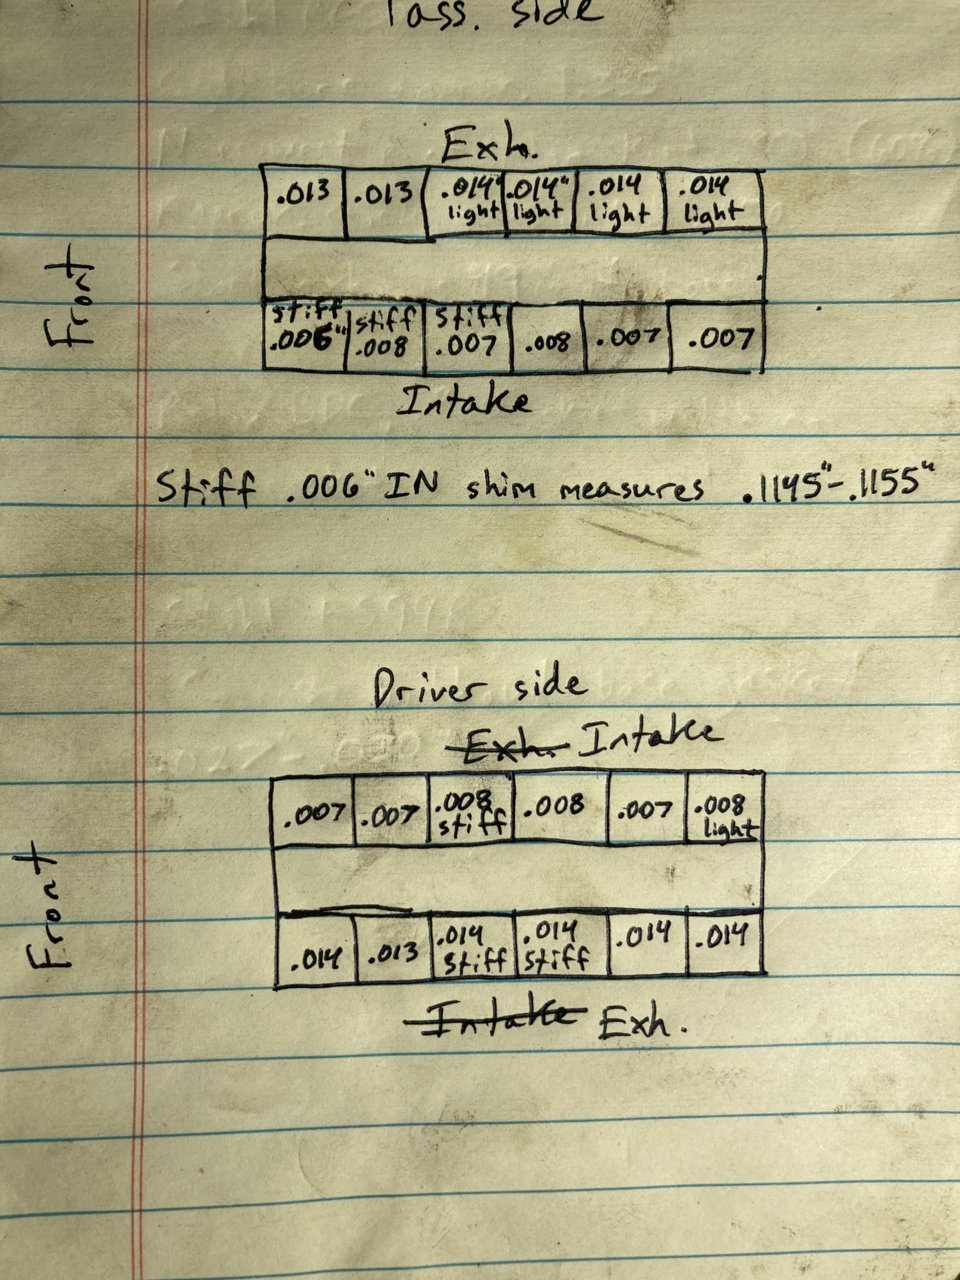 Pass. side
Exh.
.013 .013 .014" .014" .014 .014
light light light light
Front
stiff stiff stiff
.006" .008 .007 .008 .007 .007
Intake
Stiff .006" IN shim measures .1145"-.1155"
Driver side
Exh. Intake
.007 .007 .008 .008 .007 .008
stiff light
Front
.014 .013 .014 .014 .014 .014
stiff stiff
Intake Exh.